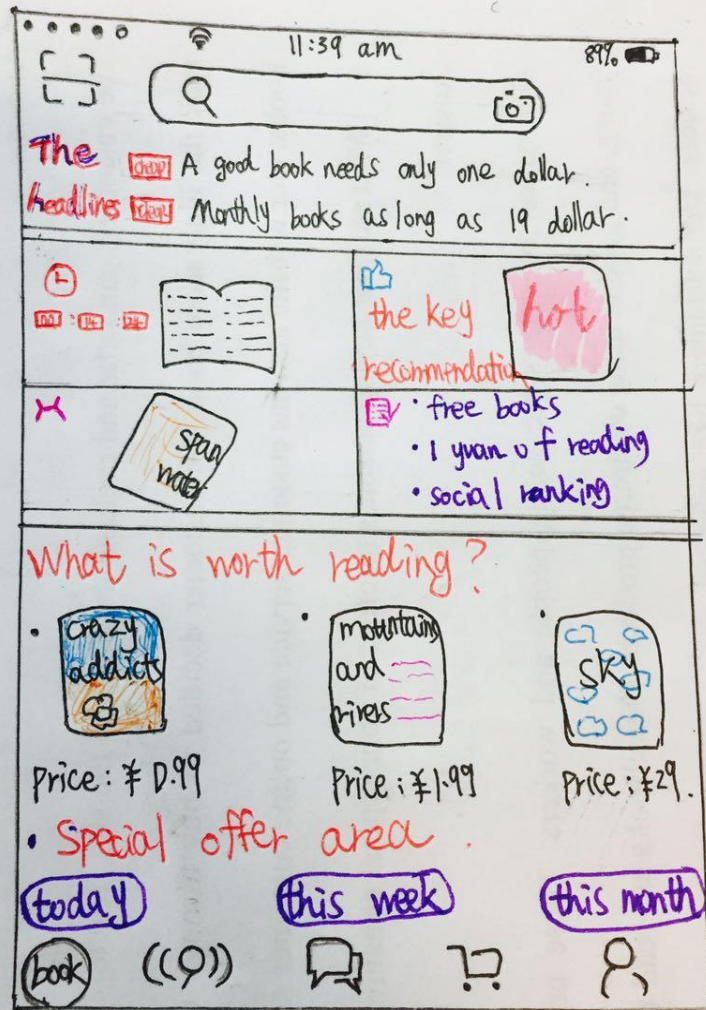 11:39 am 89%
The cheap A good book needs only one dollar.
headlines cheap Monthly books as long as 19 dollar.
00 : 14 : 24
the key
recommendation
hot
span
water
· free books
· 1 yuan of reading
· social ranking
What is worth reading?
crazy
addicts
mountains
and
rivers
sky
Price: ¥ 0.99
Price: ¥1.99
Price: ¥29.
· Special offer area.
today
this week
this month
book